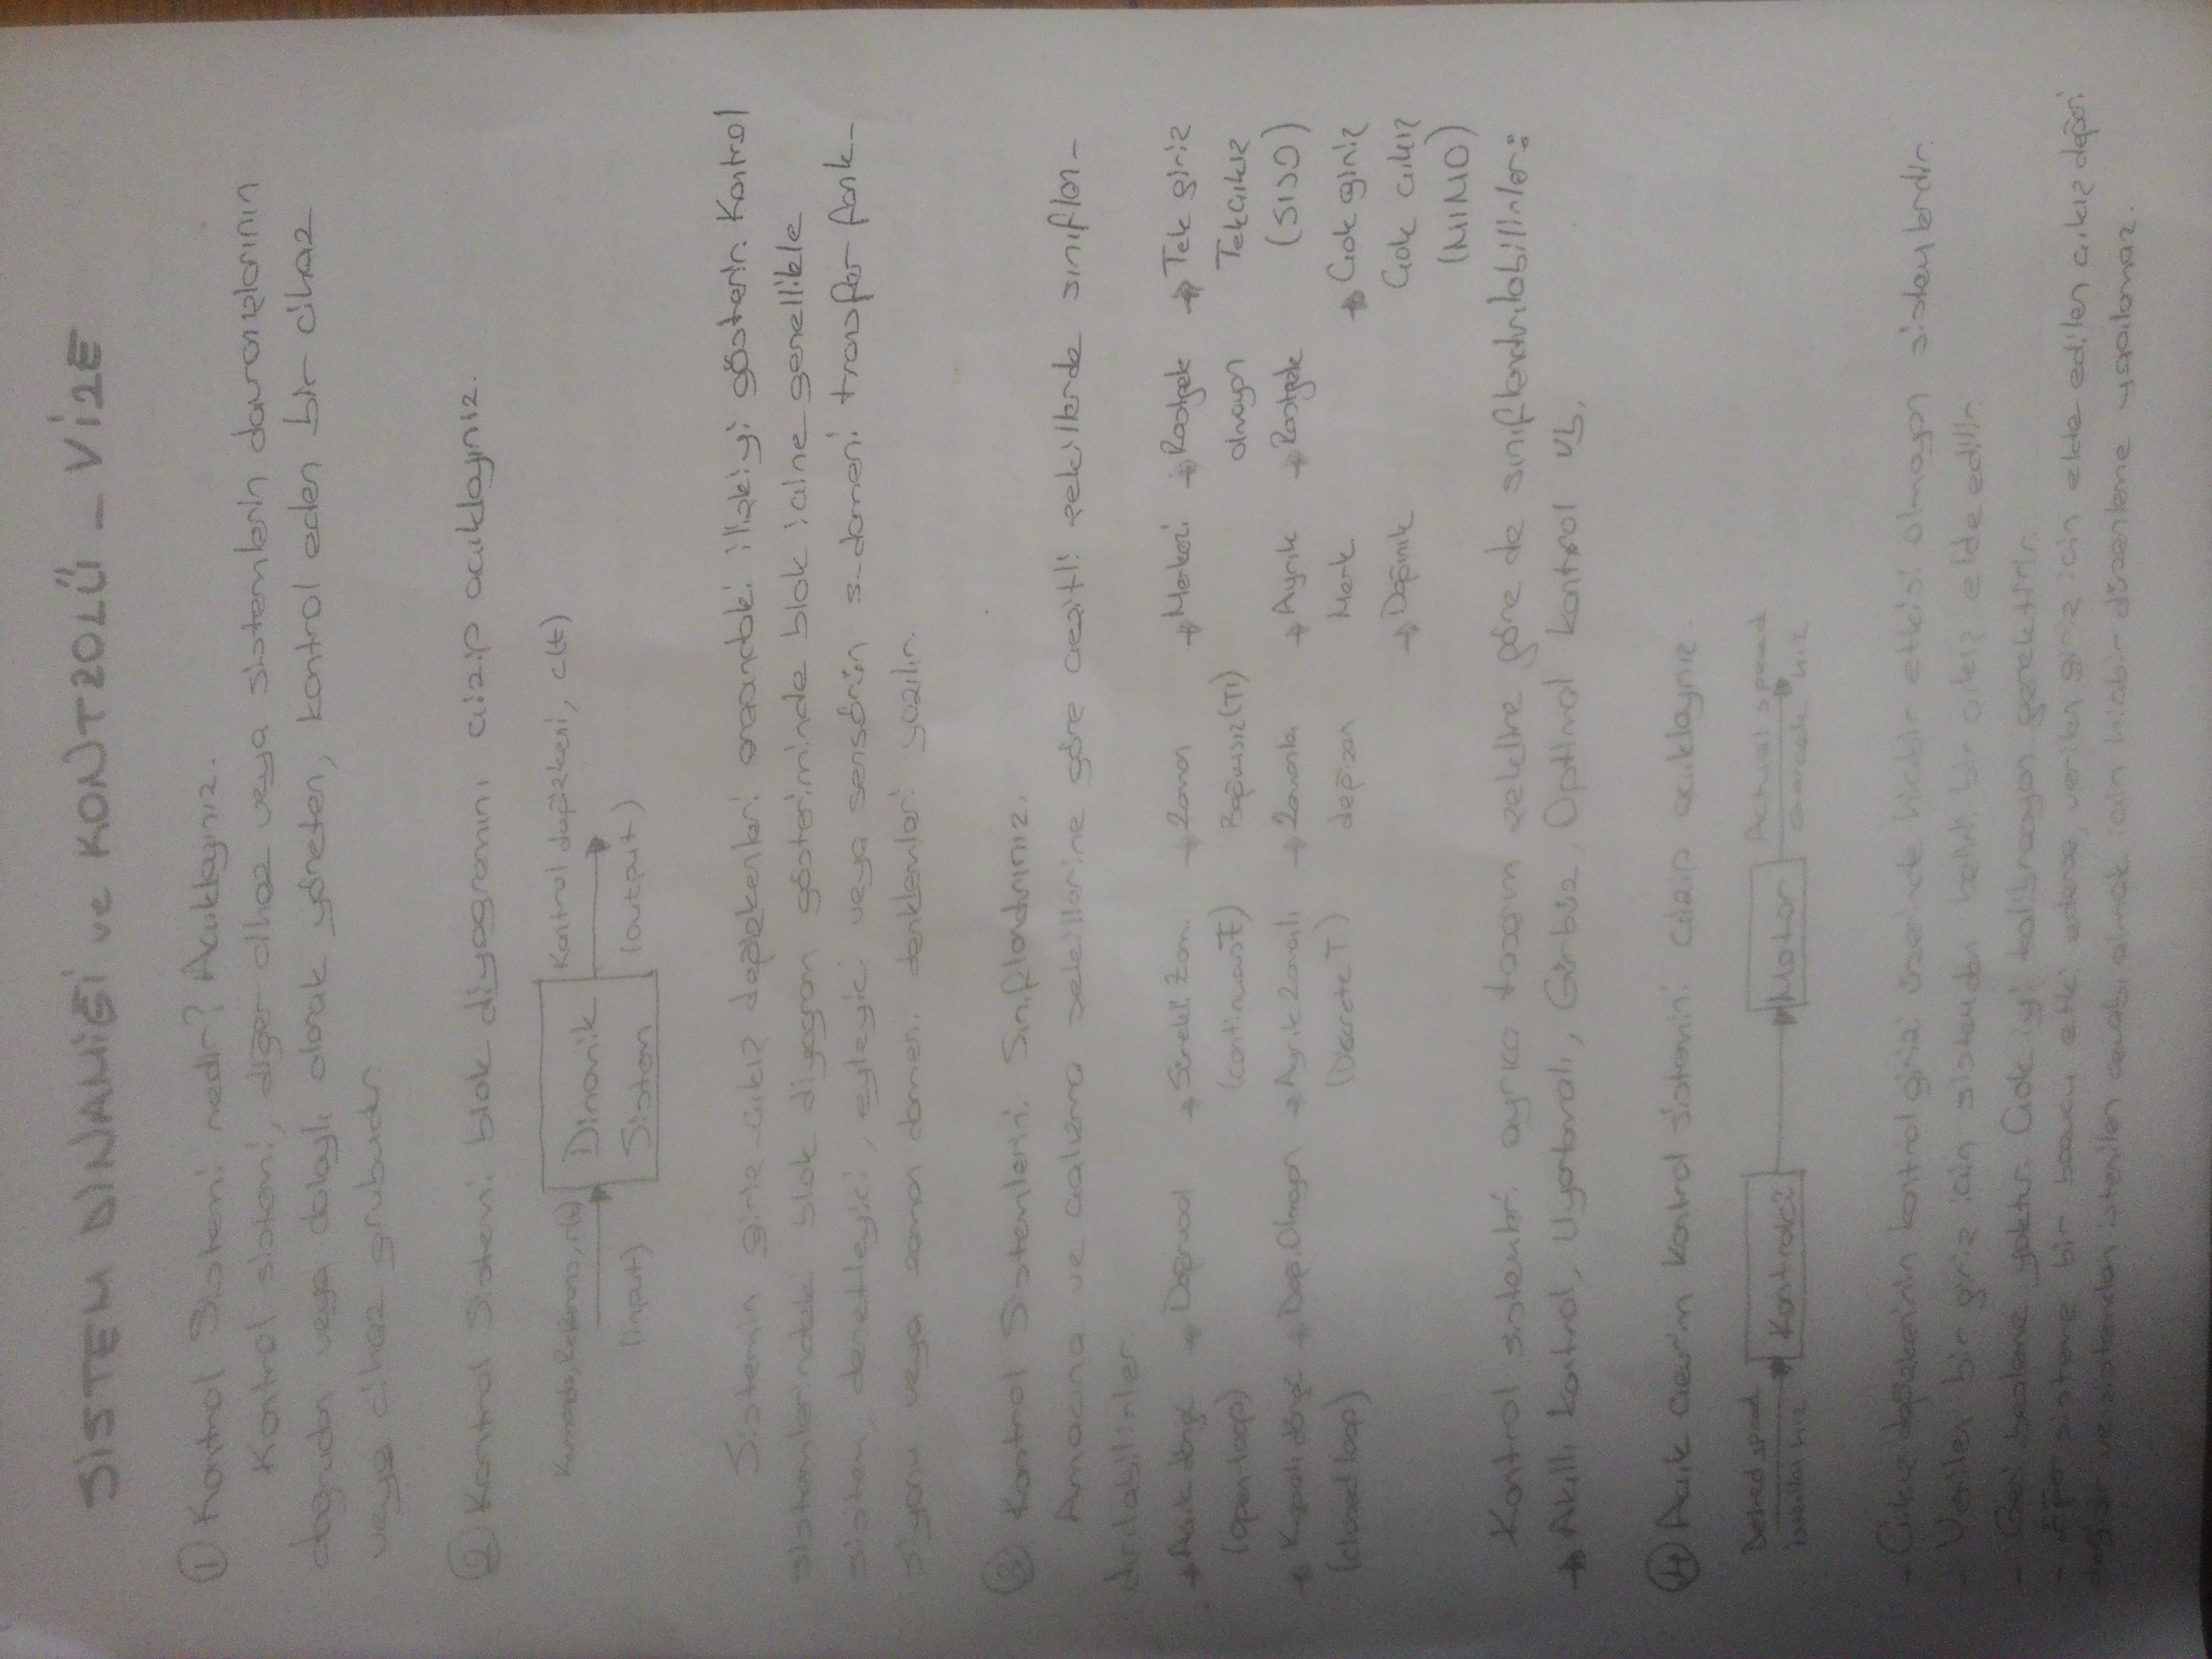 SİSTEM DİNAMİĞİ ve KONTROLÜ - VİZE
① Kontrol Sistemi nedir? Açıklayınız.
Kontrol sistemi, diğer cihaz veya sistemlerin davranışlarının
doğrudan veya dolaylı olarak yöneten, kontrol eden bir cihaz
veya cihaz grubudur.
② Kontrol Sistemi blok diyagramını çizip açıklayınız.
Kumanda, Referans, r(t)
(input)
Dinamik
Sistem
Kontrol değişkeni, c(t)
(output)
Sistemin giriş-çıkış değişkenleri arasındaki ilişkiyi gösterir. Kontrol
sistemlerindeki blok diyagram gösteriminde blok içine genellikle
sistem, denetleyici, eyleyici veya sensörün s-domeni transfer fonk-
siyonu veya zaman domeni denklemleri yazılır.
③ Kontrol Sistemlerini Sınıflandırınız.
Amacına ve çalışma şekillerine göre çeşitli şekillerde sınıflan-
dırılabilirler.
→ Açık döngü → Doğrusal → Sürekli Zam. → Zaman → Merkezi → Rastgele → Tek giriş
(open-loop) (continuous T) Bağımsız (TI) olmayan Tek çıkış
→ Kapalı döngü → Doğ. Olmayan → Ayrık Zamanlı → Zamanla → Ayrık → Rastgele (SISO)
(closed loop) (Discrete T) değişen Merk → Çok giriş
→ Dağınık Çok çıkış
(MIMO)
Kontrol sistemleri ayrıca tasarım şekline göre de sınıflandırılabilirler:
→ Akıllı kontrol, Uyarlamalı, Gürbüz, Optimal kontrol vb.
④ Açık çevrim kontrol sistemini çizip açıklayınız.
Desired speed
istenilen hız
Kontrolcü
Motor
Actual speed
Gerçek hız
- Çıkış değişkeninin kontrol girişi üzerinde hiçbir etkisi olmayan sistemlerdir.
- Verilen bir giriş için sistemden belirli bir çıkış elde edilir.
- Geri besleme yoktur. Çok iyi kalibrasyon gerektirir.
- Eğer sisteme bir bozucu etki ederse, verilen giriş için elde edilen çıkış değeri
değişir ve sistemden istenilen cevabı almak için hiçbir düzenleme yapılamaz.